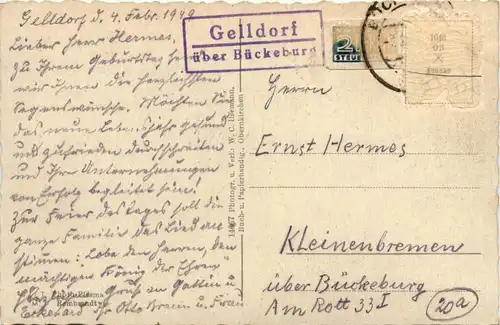 Gelldorf d. 4. Febr. 1949
Lieber Herr Hermes,
zu Ihrem Geburtstag senden
wir Ihnen die herzlichsten
Segenswünsche. Möchten Sie
das neue Lebensjahr gesund
und zufrieden durchschreiten
und Ihre Unternehmungen
von Erfolg begleitet sein!
Zur Feier des Tages soll die
ganze Familie das Lied an-
stimmen: „Lobe den Herren, den
mächtigen König der Ehren"
Gruß an Gattin u.
Eckehard Ihr Otto Braun u. Frau
Gelldorf
über Bückeburg
2
STEUER
Herrn
Ernst Hermes
Kleinenbremen
über Bückeburg
Am Rott 33 I
20a
Photogr. u. Verl.: W. C.
Buch- u. Papierhandlg., Obernkirchen